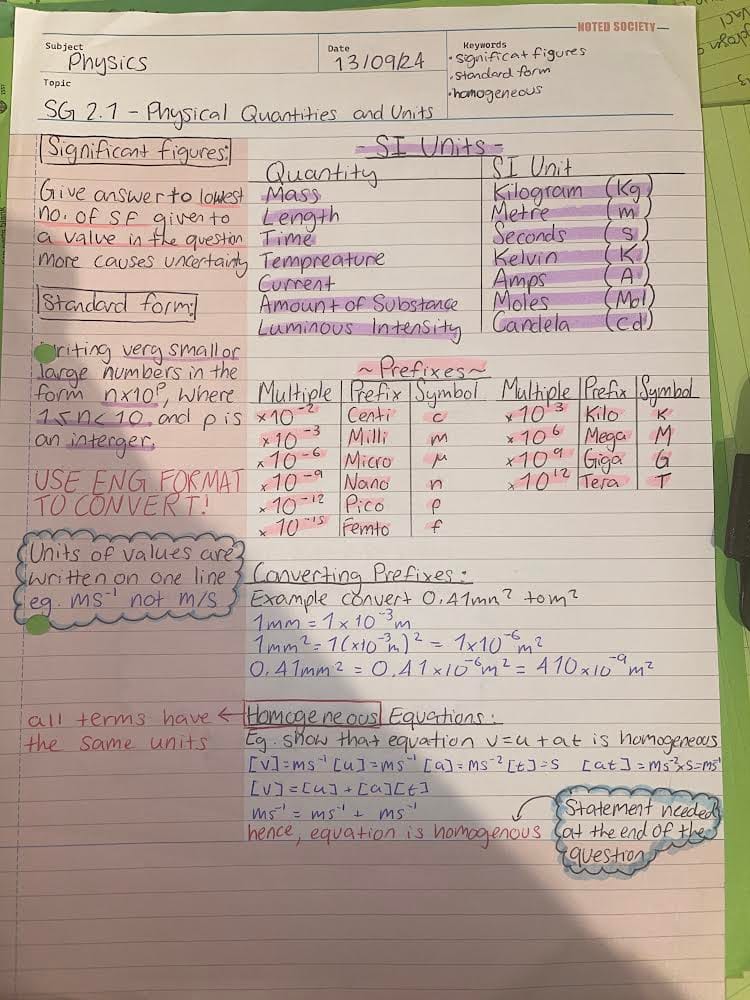 NOTED SOCIETY
Subject
Physics
Date
13/09/24
Keywords
·significat figures
·standard form
·homogeneous
Topic
SG 2.1 - Physical Quantities and Units
Significant figures:
Give answer to lowest
no. of SF given to
a value in the question
more causes uncertainty
Standard form:
writing very small or
large numbers in the
form n×10ᵖ, where
1≤n<10 and p is
an interger.
USE ENG FORMAT
TO CONVERT!
Units of values are
written on one line
eg. ms⁻¹ not m/s
- SI Units -
Quantity SI Unit
Mass Kilogram (Kg)
Length Metre (m)
Time Seconds (s)
Tempreature Kelvin (K)
Current Amps (A)
Amount of Substance Moles (Mol)
Luminous Intensity Candela (cd)
~Prefixes~
Multiple Prefix Symbol Multiple Prefix Symbol
×10⁻² Centi c ×10³ Kilo K
×10⁻³ Milli m ×10⁶ Mega M
×10⁻⁶ Micro μ ×10⁹ Giga G
×10⁻⁹ Nano n ×10¹² Tera T
×10⁻¹² Pico p
×10⁻¹⁵ Femto f
Converting Prefixes:
Example convert 0.41mm² to m²
1mm = 1×10⁻³m
1mm² = 1(×10⁻³m)² = 1×10⁻⁶m²
0.41mm² = 0.41×10⁻⁶m² = 410×10⁻⁹m²
all terms have ← Homogeneous Equations:
the same units
Eg. show that equation v=u+at is homogeneous
[v]=ms⁻¹ [u]=ms⁻¹ [a]=ms⁻² [t]=s [at]=ms⁻²×s=ms⁻¹
[v]=[u]+[a][t]
ms⁻¹ = ms⁻¹ + ms⁻¹
hence, equation is homogenous
Statement needed
at the end of the
question